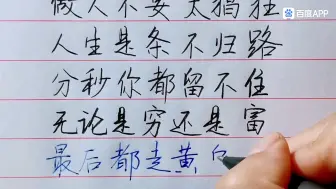 做人不要太猖狂
人生是条不归路
分秒你都留不住
无论是穷还是富
最后都走黄
百度APP